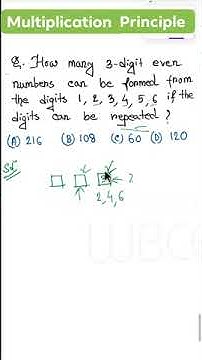 Multiplication Principle
Q. How many 3-digit even
numbers can be formed from
the digits 1, 2, 3, 4, 5, 6 if the
digits can be repeated?
(A) 216 (B) 108 (C) 60 (D) 120
Sol
2
2, 4, 6